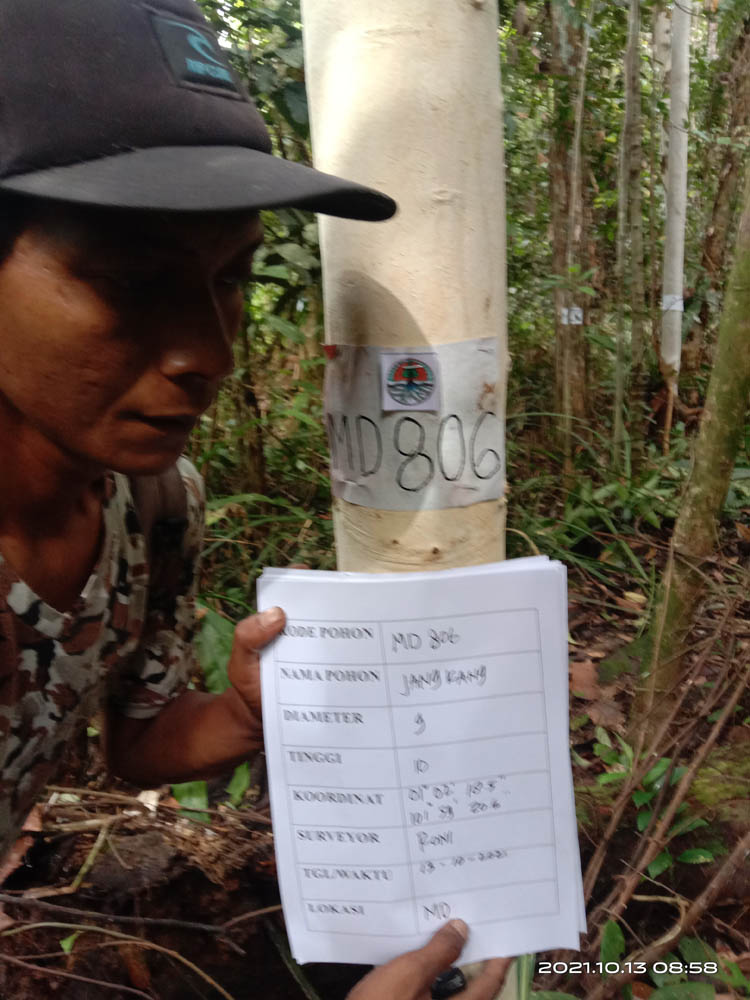 RIP CURL
MD 806
KODE POHON MD 806
NAMA POHON JANG KANG
DIAMETER 9
TINGGI 10
KOORDINAT 01° 02' 18.5"
101° 59' 20.6
SURVEYOR RONI
TGL/WAKTU 13-10-2021
LOKASI MD
2021.10.13 08:58